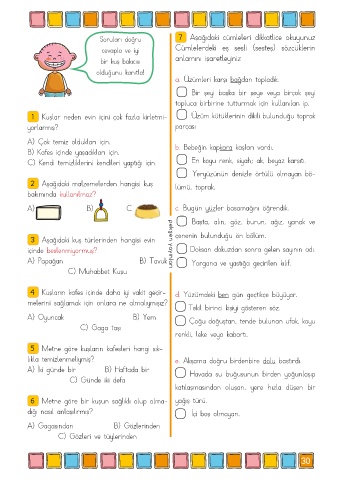 Soruları doğru
cevapla ve iyi
bir kuş bakıcısı
olduğunu kanıtla!
1 Kuşlar neden evin içini çok fazla kirletmi-
yorlarmış?
A) Çok temiz oldukları için.
B) Kafes içinde yaşadıkları için.
C) Kendi temizliklerini kendileri yaptığı için
2 Aşağıdaki malzemelerden hangisi kuş
bakımında kullanılmaz?
A)
B)
C
3 Aşağıdaki kuş türlerinden hangisi evin
içinde beslenmiyormuş?
A) Papağan B) Tavuk
C) Muhabbet Kuşu
4 Kuşların kafes içinde daha iyi vakit geçir-
melerini sağlamak için onlara ne almalıymışız?
A) Oyuncak B) Yem
C) Gaga taşı
5 Metne göre kuşların kafesleri hangi sık-
lıkla temizlenmeliymiş?
A) İki günde bir B) Haftada bir
C) Günde iki defa
6 Metne göre bir kuşun sağlıklı olup olma-
dığı nasıl anlaşılırmış?
A) Gagasından B) Gözlerinden
C) Gözleri ve tüylerinden
7 Aşağıdaki cümleleri dikkatlice okuyunuz
Cümlelerdeki eş sesli (sesteş) sözcüklerin
anlamını işaretleyiniz
a. Üzümleri karşı bağdan topladık.
Bir şeyi başka bir şeye veya birçok şeyi
topluca birbirine tutturmak için kullanılan ip.
Üzüm kütüklerinin dikili bulunduğu toprak
parçası
b. Bebeğin kapkara kaşları vardı.
En koyu renk, siyah; ak, beyaz karşıtı.
Yeryüzünün denizle örtülü olmayan bö-
lümü, toprak.
c. Bugün yüzler basamağını öğrendik.
Başta, alın, göz, burun, ağız, yanak ve
çenenin bulunduğu ön bölüm.
Doksan dokuzdan sonra gelen sayının adı.
Yorgana ve yastığa geçirilen kılıf.
d. Yüzümdeki ben gün geçtikçe büyüyor.
Tekil birinci kişiyi gösteren söz.
Çoğu doğuştan, tende bulunan ufak, koyu
renkli, leke veya kabartı.
e. Akşama doğru birdenbire dolu bastırdı.
Havada su buğusunun birden yoğunlaşıp
katılaşmasından oluşan, yere hızla düşen bir
yağış türü.
İçi boş olmayan.
30